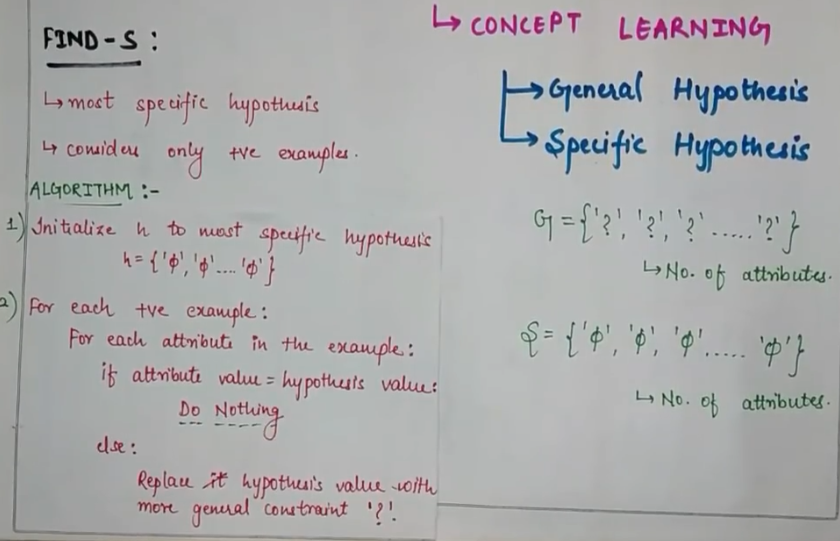 FIND-S :
↳ most specific hypothesis
↳ considers only +ve examples.
ALGORITHM :-
1) Initialize h to most specific hypothesis
h = {'ϕ', 'ϕ' .... 'ϕ'}
2) For each +ve example :
For each attribute in the example :
if attribute value = hypothesis value :
Do Nothing
else :
Replace it hypothesis value with
more general constraint '?'
↳ CONCEPT LEARNING
→ General Hypothesis
→ Specific Hypothesis
G = {'?', '?', '?' ..... '?'}
↳ No. of attributes.
S = {'ϕ', 'ϕ', 'ϕ' ..... 'ϕ'}
↳ No. of attributes.